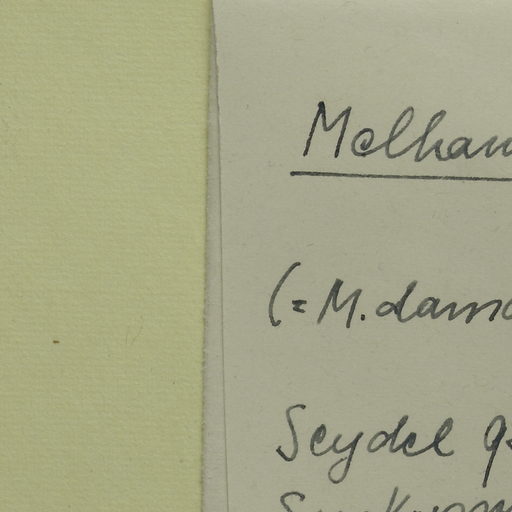 Melhan
(= M. dama
Seydel